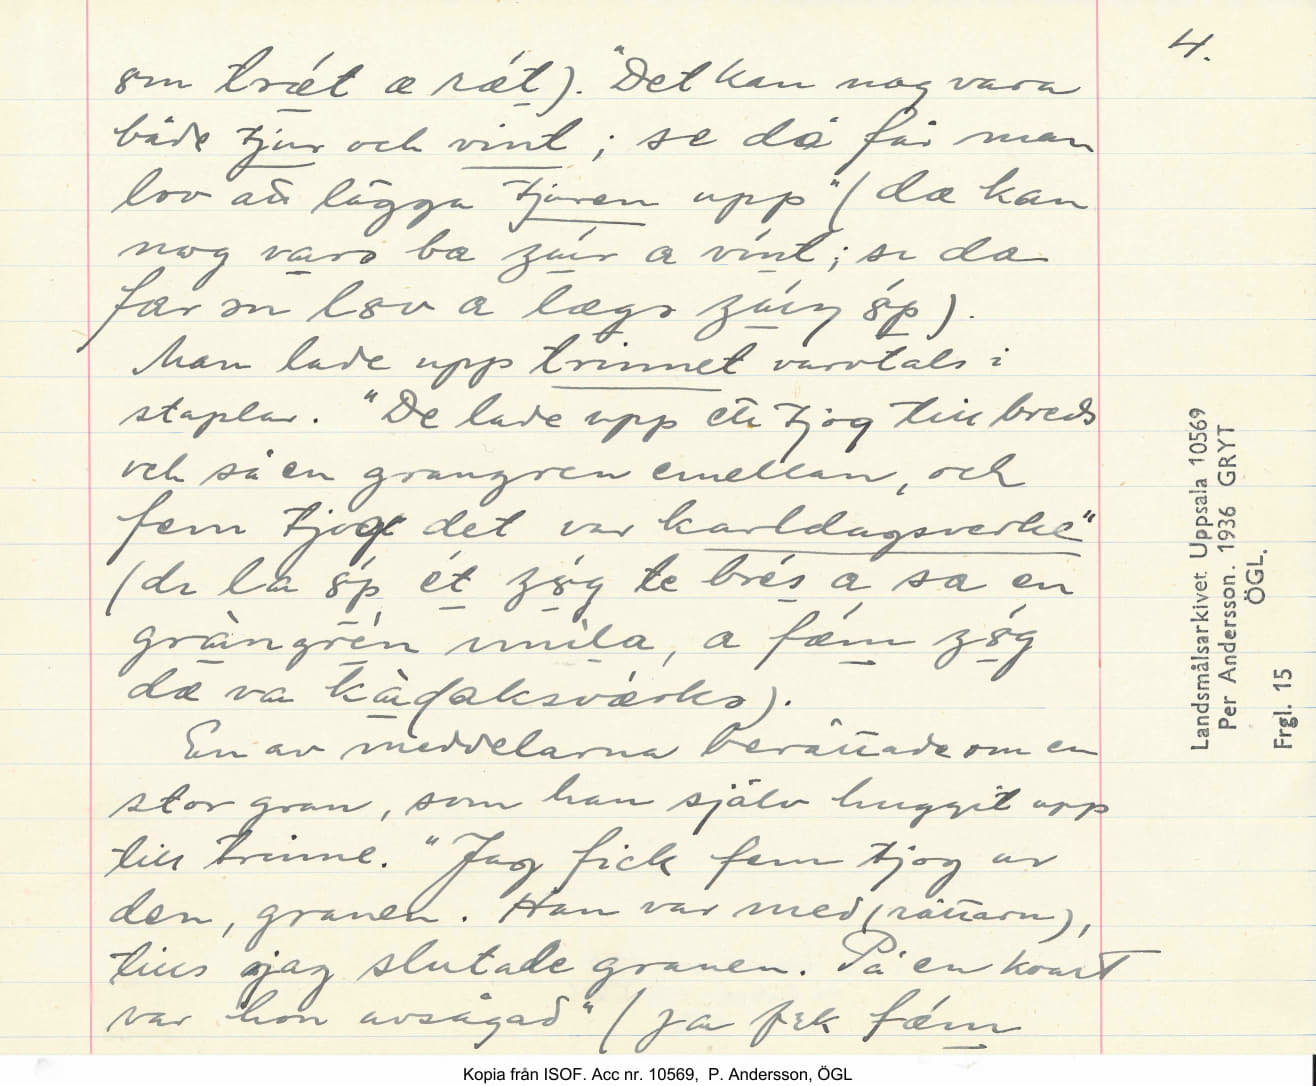 4.
som trǽt æ rǽt). "Det kan nog vara
både tjur och vint; se då får man
lov att lägga tjuren upp" (dæ kan
nog
fær
Man lade upp trinnet varvtals i
staplar. "De lade upp ett tjog till breds
och så en grangren emellan, och
fem tjog det var karldagsverke"
(dı la ét te brés a sa en
gràngrén, a fǽm
dæ va
En av meddelarna berättade om en
stor gran, som han själv huggit upp
till trinne. "Jag fick fem tjog av
den, granen. Han var med (rättarn),
tills jag slutade granen. På en kvart
var hon avsågad" (ja fǽm
Landsmålsarkivet Uppsala 10569
Per Andersson. 1936 GRYT
ÖGL.
Frgl. 15
Kopia från ISOF. Acc nr. 10569, P. Andersson, ÖGL